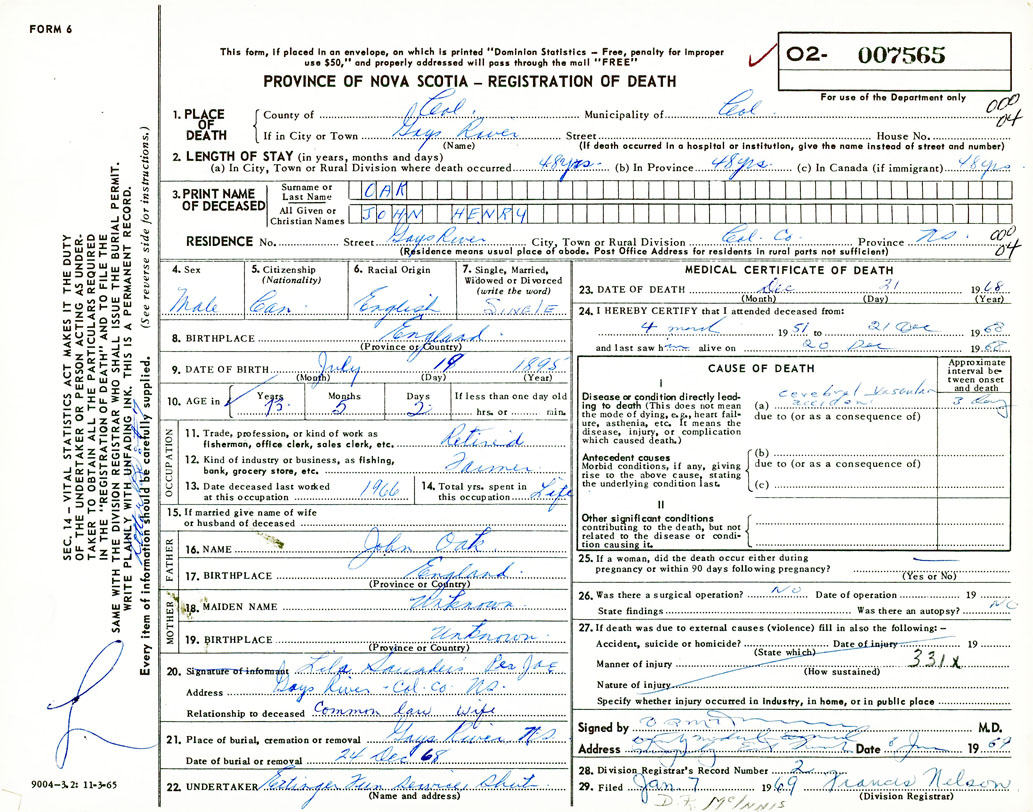 FORM 6
This form, if placed in an envelope, on which is printed "Dominion Statistics – Free, penalty for improper
use $50," and properly addressed will pass through the mail "FREE"
O2- 007565
For use of the Department only
PROVINCE OF NOVA SCOTIA – REGISTRATION OF DEATH
000
04
1. PLACE OF DEATH
County of Col. Municipality of Col
If in City or Town Gays River Street House No.
(Name) (If death occurred in a hospital or institution, give the name instead of street and number)
2. LENGTH OF STAY (in years, months and days)
(a) In City, Town or Rural Division where death occurred 48yrs. (b) In Province 48yrs. (c) In Canada (if immigrant) 48yrs
3. PRINT NAME OF DECEASED
Surname or Last Name OAK
All Given or Christian Names JOHN HENRY
RESIDENCE No. Street Gays River City, Town or Rural Division Col. Co. Province NS. 000
04
(Residence means usual place of abode. Post Office Address for residents in rural parts not sufficient)
4. Sex
Male
5. Citizenship
(Nationality)
Can
6. Racial Origin
English
7. Single, Married,
Widowed or Divorced
(write the word)
SINGLE
8. BIRTHPLACE England
(Province or Country)
9. DATE OF BIRTH July 19 1895
(Month) (Day) (Year)
10. AGE in Years Months Days If less than one day old
73 5 2 hrs. or min.
OCCUPATION
11. Trade, profession, or kind of work as
fisherman, office clerk, sales clerk, etc. Retired
12. Kind of industry or business, as fishing,
bank, grocery store, etc. Farmer
13. Date deceased last worked
at this occupation 1966
14. Total yrs. spent in
this occupation Life
15. If married give name of wife
or husband of deceased
FATHER
16. NAME John Oak
17. BIRTHPLACE England
(Province or Country)
MOTHER
18. MAIDEN NAME Unknown
19. BIRTHPLACE Unknown
(Province or Country)
20. Signature of informant Lila Saunders Per JAE
Address Gays River - Col. Co. NS.
Relationship to deceased Common law wife
21. Place of burial, cremation or removal Gays River NS
Date of burial or removal 24 Dec 68
22. UNDERTAKER Ettinger Fun Service Shut.
(Name and address)
MEDICAL CERTIFICATE OF DEATH
23. DATE OF DEATH Dec 21 1968
(Month) (Day) (Year)
24. I HEREBY CERTIFY that I attended deceased from:
4 1951 to 21 Dec 1968
and last saw him alive on 20 Dec 1968
CAUSE OF DEATH
Approximate
interval be-
tween onset
and death
I
Disease or condition directly lead-
ing to death (This does not mean
the mode of dying, e.g., heart fail-
ure, asthenia, etc. It means the
disease, injury, or complication
which caused death.)
(a) cerebral vascular
accident 3 day
due to (or as a consequence of)
Antecedent causes
Morbid conditions, if any, giving
rise to the above cause, stating
the underlying condition last.
(b)
due to (or as a consequence of)
(c)
II
Other significant conditions
contributing to the death, but not
related to the disease or condi-
tion causing it.
25. If a woman, did the death occur either during
pregnancy or within 90 days following pregnancy?
(Yes or No)
26. Was there a surgical operation? NO Date of operation 19
State findings Was there an autopsy? NO
27. If death was due to external causes (violence) fill in also the following: –
Accident, suicide or homicide? Date of injury 19
(State which)
Manner of injury 331X
(How sustained)
Nature of injury
Specify whether injury occurred in industry, in home, or in public place
Signed by M.D.
Address Date 8 Jan 1969
28. Division Registrar's Record Number 2
29. Filed Jan 7 1969 Francis Nelson
(Division Registrar)
D.F. McINNIS
SEC. 14 – VITAL STATISTICS ACT MAKES IT THE DUTY
OF THE UNDERTAKER OR PERSON ACTING AS UNDER-
TAKER TO OBTAIN ALL THE PARTICULARS REQUIRED
IN THE "REGISTRATION OF DEATH" AND TO FILE THE
SAME WITH THE DIVISION REGISTRAR WHO SHALL ISSUE THE BURIAL PERMIT.
WRITE PLAINLY WITH UNFADING INK. THIS IS A PERMANENT RECORD.
Every item of information should be carefully supplied. (See reverse side for instructions.)
9004-3.2: 11-3-65